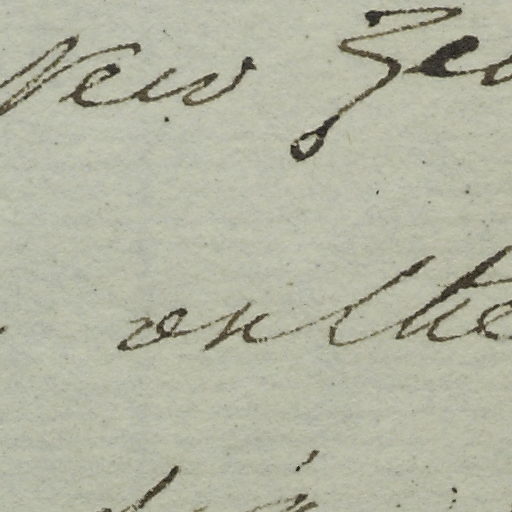 New Zea
on the